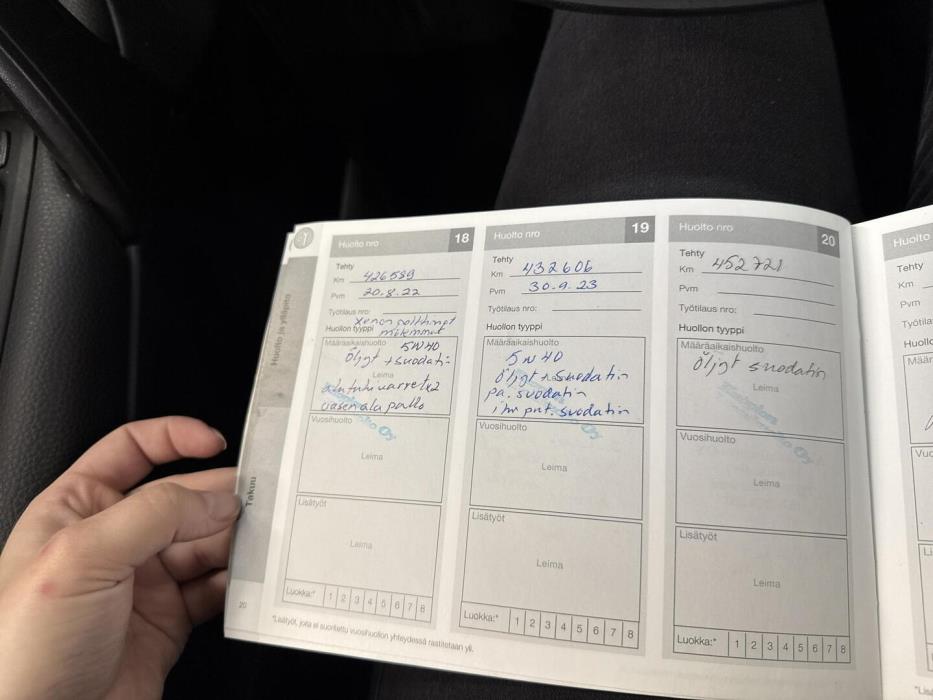 Huolto ja ylläpito
Takuu
20
Huolto nro 18
Tehty
Km 426589
Pvm 20.8.22
Työtilaus nro:
xenon polttimot
Huollon tyyppi molemmat
Määräaikaishuolto 5W40
Öljyt + suodatin
Leima
alatukivarret x2
vasen ala pallo
Oy
Vuosihuolto
Leima
Lisätyöt
Leima
Luokka:* 1 2 3 4 5 6 7 8
*Lisätyöt, joita ei suoritettu vuosihuollon yhteydessä rastitetaan yli.
Huolto nro 19
Tehty
Km 432606
Pvm 30.9.23
Työtilaus nro:
Huollon tyyppi
Määräaikaishuolto
5W40
Öljyt + suodatin
pa. suodatin
suodatin
Oy
Vuosihuolto
Leima
Lisätyöt
Leima
Luokka:* 1 2 3 4 5 6 7 8
Huolto nro 20
Tehty
Km 452721
Pvm
Työtilaus nro:
Huollon tyyppi
Määräaikaishuolto
Öljyt suodatin
Leima
Oy
Vuosihuolto
Leima
Lisätyöt
Leima
Luokka:* 1 2 3 4 5 6 7 8
Huolto
Tehty
Km
Pvm